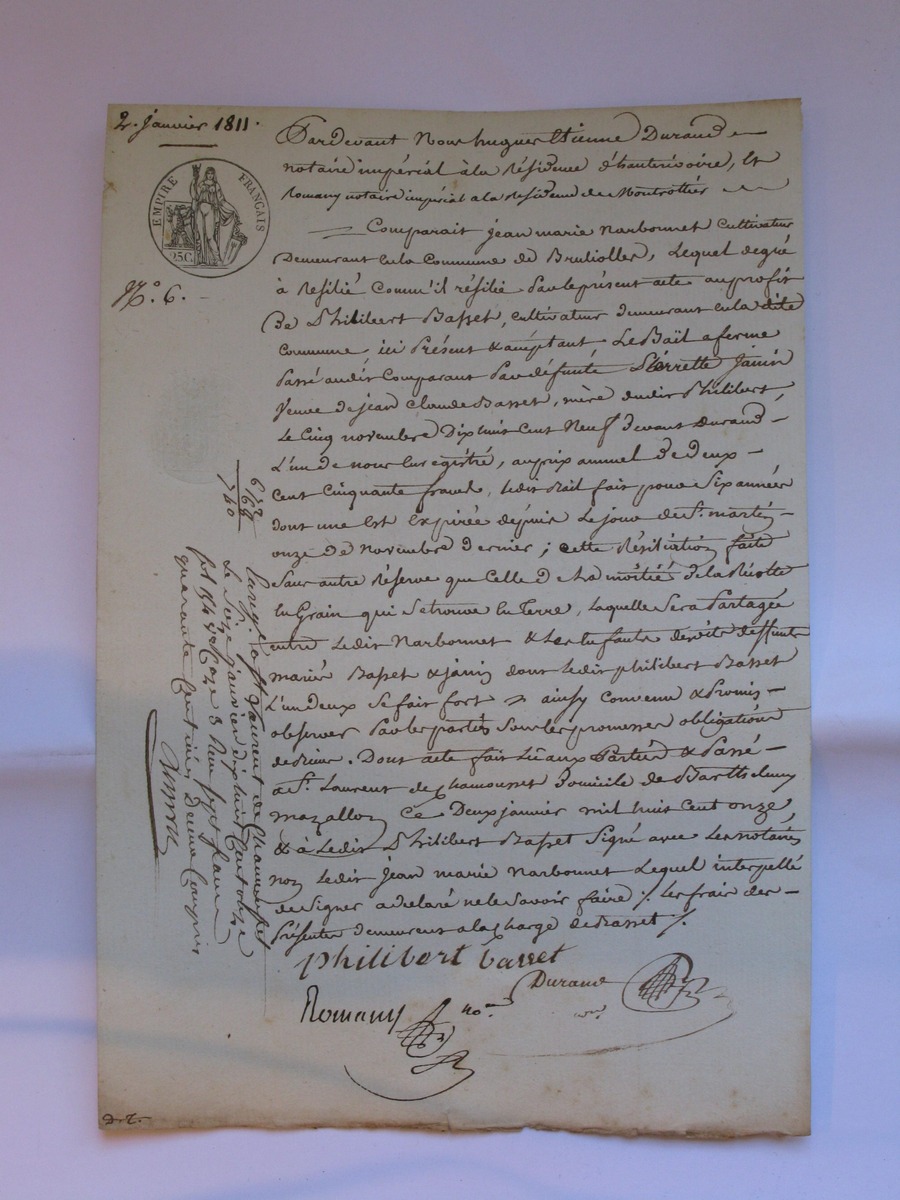 2. janvier 1811.
Pardevant Nous hugues Etienne Durand
notaire impérial à la Résidence d'hauterivoire, Et
Romany notaire impérial a la Residence de Montrottier
EMPIRE FRANÇAIS
25C.
N.o 6.
Comparait jean marie Narbonnet cultivateur
Demeurant en la Commune de Brullioller, Lequel de gré
à Résilié Comm'il résilie Par le présent acte au profit
De Philibert Basset, cultivateur demeurant en la dite
Commune, ici Présent & acceptant Le Bail a ferme
Passé audit Comparant Par défunte Pierrette Janin
Veuve de jean Claude Basset, mère dudit Philibert,
Le Cinq novembre Dix huit Cent Neuf devant Durand
L'un de nous Enregistré, au prix annuel De Deux
Cent Cinquante francs, ledit Bail fait pour Six années
dont une Est Expirée depuis Le jour de St. martin
onze De novembre Dernier ; Cette Résiliation faite
Sans autre Réserve que Celle de La moitié de la Récolte
En Grain qui Se trouve En Terre, Laquelle Sera Partagée
entre Ledit Narbonnet & Les Enfants desdits deffunts
mariés Basset & janin dont Ledit philibert Basset
L'un deux Se fait fort ainsy Convenu & Promis
observer Par les parties Sous les promesses obligations
de Droit. Dont acte fait Lû aux Parties & Passé
a St. Laurent de chamousset Domicile de Barthelemy
mazallon Ce Deux janvier mil huit Cent onze
& à Ledit Philibert Basset Signé avec Les notaires
non Ledit Jean marie Narbonnet Lequel interpellé
de Signer a déclaré ne le Savoir faire /. Les frais des
Présentes demeurent a la Charge de Basset /.
philibert basset
Durand
Romany
no.re
6 17
68
7 40
Enreg. à St Laurent de Chamousset
Le Seize janvier dix huit Cent onze
fol 154 Case 3 Reçu Sept francs
quarante Centimes Decime Compris
D.R.